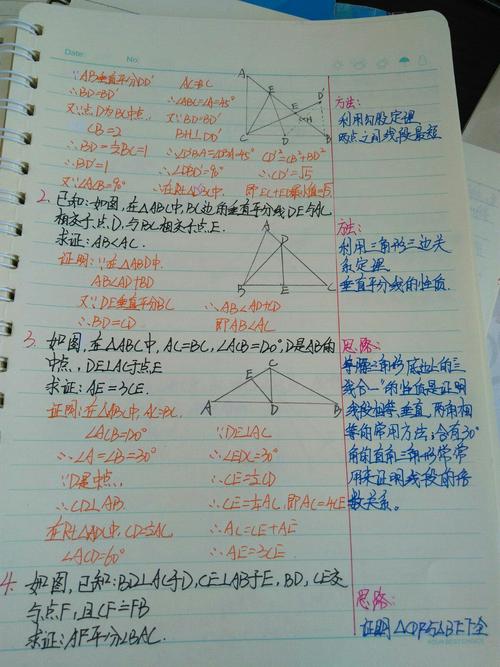 Date:
No:
∵AB垂直平分DD′ AC=BC
∴BD=BD′ ∴∠ABC=∠A=45°
又∵点D为BC中点, 又∵BD=BD′
CB=2 BH⊥DD′
∴BD=½BC=1 ∴∠D′BA=∠DBA=45° CD′²=CB²+BD²
∴BD′=1 ∴∠DBD′=90° ∴CD′=√5
又∵∠ACB=90° ∴在Rt△D′BC中, 即EC+ED最小值=√5
A
E
D′
E
H
C
D
B
方法:
利用勾股定理
两点之间线段最短
2. 已知:如图,在△ABC中,BC边的垂直平分线DE与AC
相交于点D,与BC相交于点E.
求证:AB<AC.
证明:∵在△ABD中,
AB<AD+BD
又∵DE垂直平分BC ∴AB<AD+CD
∴BD=CD 即AB<AC
A
D
B
E
C
方法:
利用三角形三边关
系定理
垂直平分线的性质.
3. 如图,在△ABC中,AC=BC,∠ACB=120°,D是AB的
中点,DE⊥AC于点E
求证:AE=3CE.
证明:在△ABC中,AC=BC, ∵DE⊥AC
∠ACB=120° ∴∠EDC=30°
∴∠A=∠B=30° ∴CE=½CD
∵D是中点, ∴CE=¼AC,即AC=4CE
∴CD⊥AB. ∴AC=CE+AE
在Rt△ADC中,CD=½AC, ∴AE=3CE
∠ACD=60°
C
E
A
D
B
思路:
等腰三角形底边上的三
线合一"的性质是证明
线段相等、垂直,两角相
等的常用方法;含有30°
角的直角三角形常常
用来证明线段的倍
数关系。
4. 如图,已知:BD⊥AC于D,CE⊥AB于E,BD,CE交
与点F,且CF=FB
求证:AF平分∠BAC.
思路:
证明△CDF与△BEF全